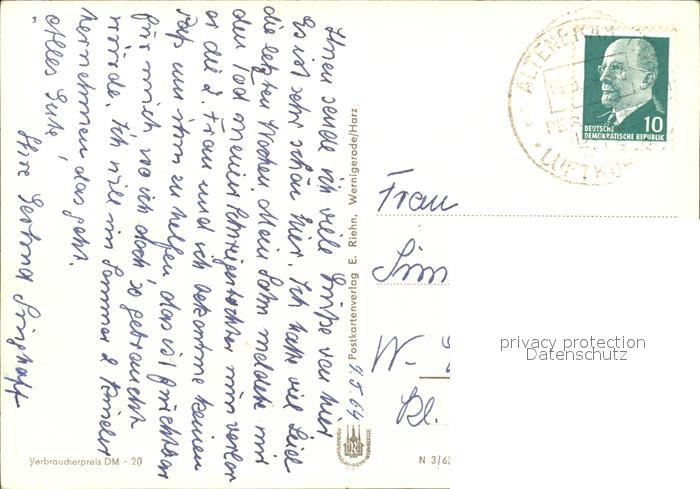 Ihnen sende ich viele Grüße von hier
Es ist sehr schön hier. Ich hatte viel Leid
die letzten Wochen. Mein Sohn meldete mir
den Tod meiner Schwiegertochter nun verlor
er die 2. Frau und ich bekomme keinen
Paß um ihm zu helfen, das ist furchtbar
für mich, wo ich doch so gebraucht
würde. Ich will im Sommer 2 Kinder
hernehmen das geht.
Alles Gute,
Ihre
9.5.64
Postkartenverlag E. Riehn, Wernigerode/Harz
Frau
Sim
W-
Kl.
ALTENBRAK
LUFTKUR
10
DEUTSCHE
DEMOKRATISCHE REPUBLIK
privacy protection
Datenschutz
Verbraucherpreis DM -.20
N 3/63